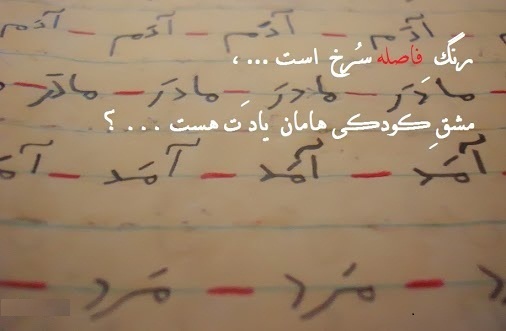 آدَم – آدَم – آدَم – آدَم
رنگِ فاصله سُرخ است ... ،
مادَر – مادَر – مادَر – مادَر
مشقِ کودکی هامان یادَت هست . . . ؟
آمَد – آمَد – آمَد – آمَـ
د – مَرد – مَرد –